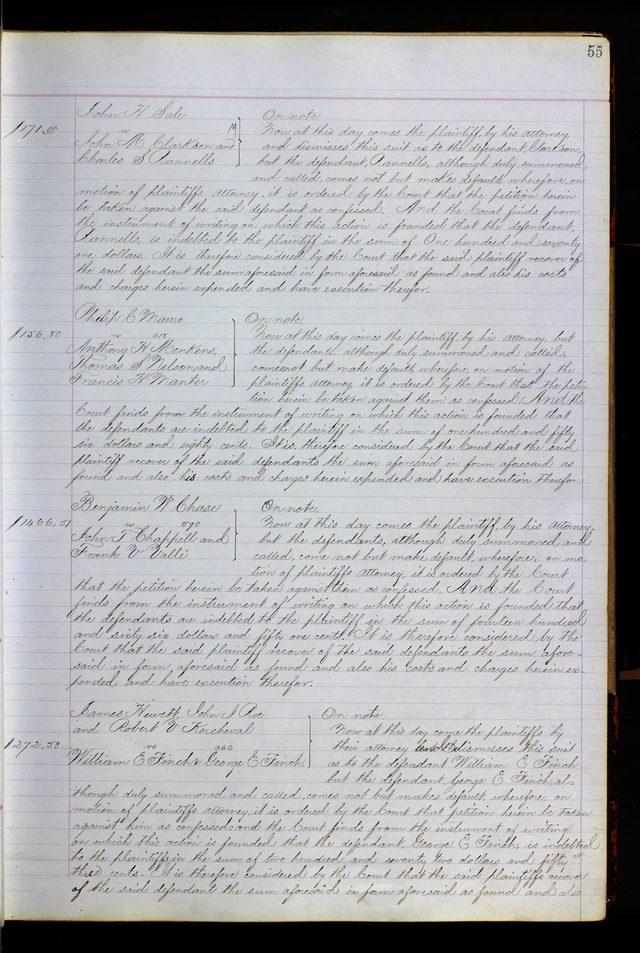 55
John H Sale
$171.00
vs
John M Clarkson and
Charles S Rannells
On note
Now at this day comes the plaintiff, by his attorney
and dismisses this suit as to the defendant, Clarkson,
but the defendant, Rannells, although duly summoned
and called, comes not but makes default, wherefore, on
motion of plaintiffs attorney, it is ordered by the Court that the petition herein
be taken against the said defendant as confessed. And the Court finds from
the instrument of writing on which this action is founded that the defendant,
Rannells, is indebted to the plaintiff in the sum of One hundred and seventy
one dollars. It is therefore considered by the Court that the said plaintiff recover of
the said defendant the sum aforesaid in form aforesaid as found and also his costs
and charges herein expended and have execution therefor.
Philip C Mauro
$156.80
vs
Anthony H Menkens,
Thomas S Nelson and
Francis H Manter
On note
Now at this day comes the plaintiff, by his attorney, but
the defendants, although duly summoned and called,
comes not but make default, wherefore, on motion of the
plaintiffs attorney it is ordered by the Court that the peti-
tion herein be taken against them as confessed. And the
Court finds from the instrument of writing on which this action is founded that
the defendants are indebted to the plaintiff in the sum of one hundred and fifty
six dollars and eighty cents. It is therefore considered by the Court that the said
plaintiff recover of the said defendants the sum aforesaid in form aforesaid as
found and also his costs and charges herein expended and have execution therefor
Benjamin W Chase
$1466.51
vs 590
John T Chappell and
Frank V Vallé
On note
Now at this day comes the plaintiff, by his attorney,
but the defendants, although duly summoned and
called, come not but make default, wherefore, on mo-
tion of plaintiffs attorney, it is ordered by the Court
that the petition herein be taken against them as confessed. And the Court
finds from the instrument of writing on which this action is founded that
the defendants are indebted to the plaintiff in the sum of fourteen hundred
and sixty six dollars and fifty one cents. It is therefore considered by the
Court that the said plaintiff recover of the said defendants the sum afore-
said in form aforesaid as found and also his costs and charges herein ex-
pended and have execution therefor.
James Hewett John J Roe
and Robert V Kercheval
$272.53
vs
William E Finch & George E Finch
On note
Now at this day come the plaintiffs by
their attorney and dismisses this suit
as to the defendant William E Finch
but the defendant, George E Finch, al-
though duly summoned and called, comes not but makes default, wherefore, on
motion of plaintiffs attorney, it is ordered by the Court that petition herein be taken
against him as confessed: and the Court finds from the instrument of writing
on which this action is founded that the defendant, George E Finch, is indebted
to the plaintiffs in the sum of two hundred and seventy two dollars and fifty
three cents. It is therefore considered by the Court that the said plaintiffs recover
of the said defendant the sum aforesaid in form aforesaid as found and also